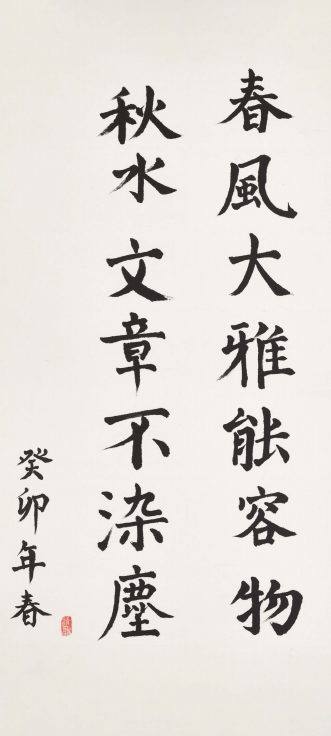 春風大雅能容物
秋水文章不染塵
癸卯年春